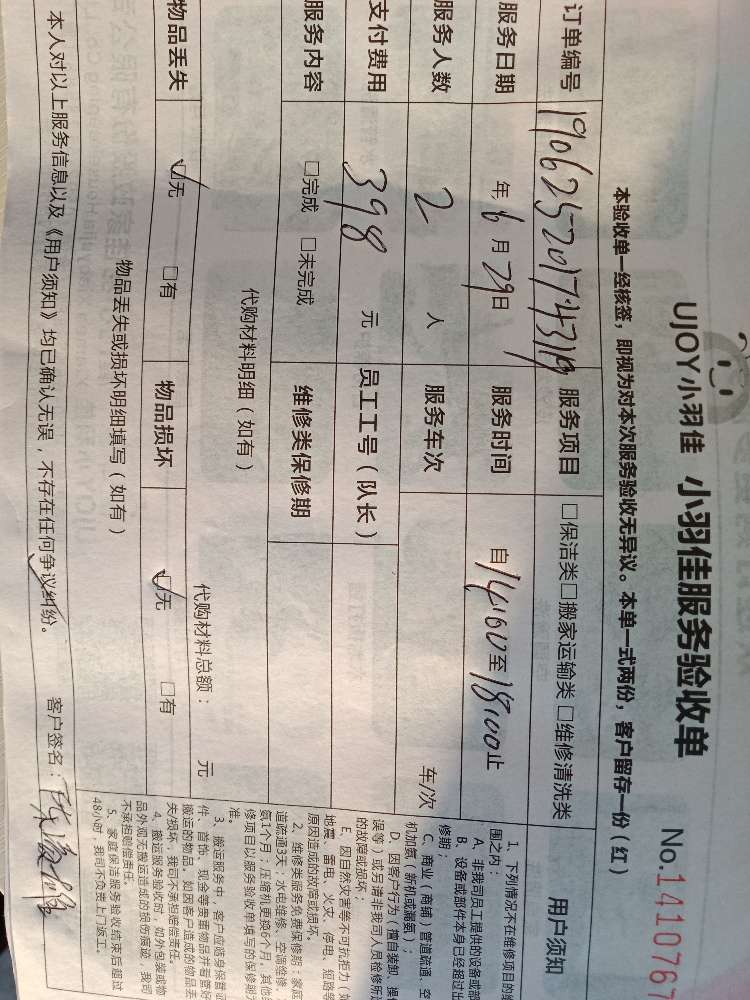 UJOY小羽佳 小羽佳服务验收单 No.1410767
本验收单一经核签，即视为对本次服务验收无异议。本单一式两份，客户留存一份（红）
订单编号 服务项目 □保洁类□搬家运输类□维修清洗类
服务日期 年 6 月 29 日 服务时间 自 14:00 至 18:00 止
服务人数 2 人 服务车次 车/次
支付费用 398 元 员工工号（队长）
服务内容 □完成 □未完成 维修类保修期
代购材料明细（如有）
代购材料总额： 元
物品丢失 ☑无 □有 物品损坏 ☑无 □有
物品丢失或损坏明细填写（如有）
本人对以上服务信息以及《用户须知》均已确认无误，不存在任何争议纠纷。 客户签名：
用户须知
1、下列情况不在维修项目的
围之内：
A、非我司员工提供的设备或部
B、设备或部件本身已经超过出
修期；
C、商业（商铺）管道疏通、空
机加氨（新机或漏氨）；
D、因客户行为（擅自装卸、操
误等）或另请非我司人员检修所
的故障或损坏；
E、因自然灾害等不可抗拒力（如
地震、雷电、火灾、停电、短路等
原因造成的故障或损坏。
2、维修类服务免费保修期：家庭
道疏通3天；水电维修、空调维修、
氨1个月；压缩机更换6个月，其他维
修项目以服务验收单填写的保修期为
准。
3、搬运服务中，客户应随身保管证
件、首饰、现金等贵重物品并看管好
搬运的物品。如因客户造成的物品丢
失/损坏，我司不承担赔偿责任。
4、搬运服务验收时，如外包装或物
品外观无搬运造成的损伤痕迹，我司
不承担赔偿责任。
5、家庭保洁服务验收结束后超过
48小时，我司不负责上门返工。